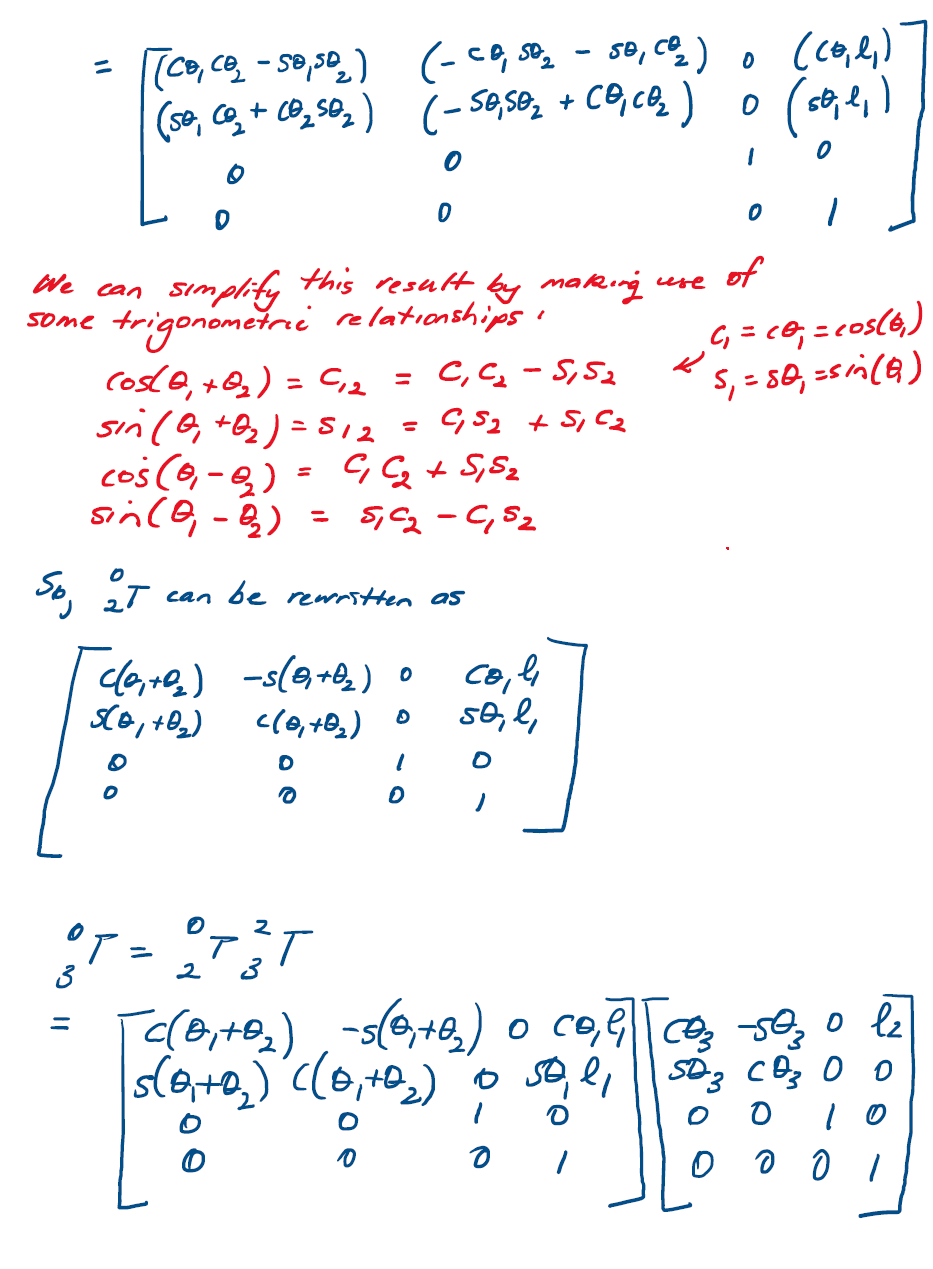 = [ (cθ₁cθ₂ - sθ₁sθ₂) (-cθ₁sθ₂ - sθ₁cθ₂) 0 (cθ₁l₁) ]
(sθ₁cθ₂ + cθ₂sθ₂) (-sθ₁sθ₂ + cθ₁cθ₂) 0 (sθ₁l₁)
0 0 1 0
0 0 0 1
We can simplify this result by making use of
some trigonometric relationships:
c₁ = cθ₁ = cos(θ₁)
cos(θ₁+θ₂) = c₁₂ = c₁c₂ - s₁s₂ ↙ s₁ = sθ₁ = sin(θ₁)
sin(θ₁+θ₂) = s₁₂ = c₁s₂ + s₁c₂
cos(θ₁-θ₂) = c₁c₂ + s₁s₂
sin(θ₁-θ₂) = s₁c₂ - c₁s₂
So, ⁰₂T can be rewritten as
[ c(θ₁+θ₂) -s(θ₁+θ₂) 0 cθ₁l₁ ]
s(θ₁+θ₂) c(θ₁+θ₂) 0 sθ₁l₁
0 0 1 0
0 0 0 1
⁰₃T = ⁰₂T ²₃T
= [ c(θ₁+θ₂) -s(θ₁+θ₂) 0 cθ₁l₁ ] [ cθ₃ -sθ₃ 0 l₂ ]
s(θ₁+θ₂) c(θ₁+θ₂) 0 sθ₁l₁ sθ₃ cθ₃ 0 0
0 0 1 0 0 0 1 0
0 0 0 1 0 0 0 1